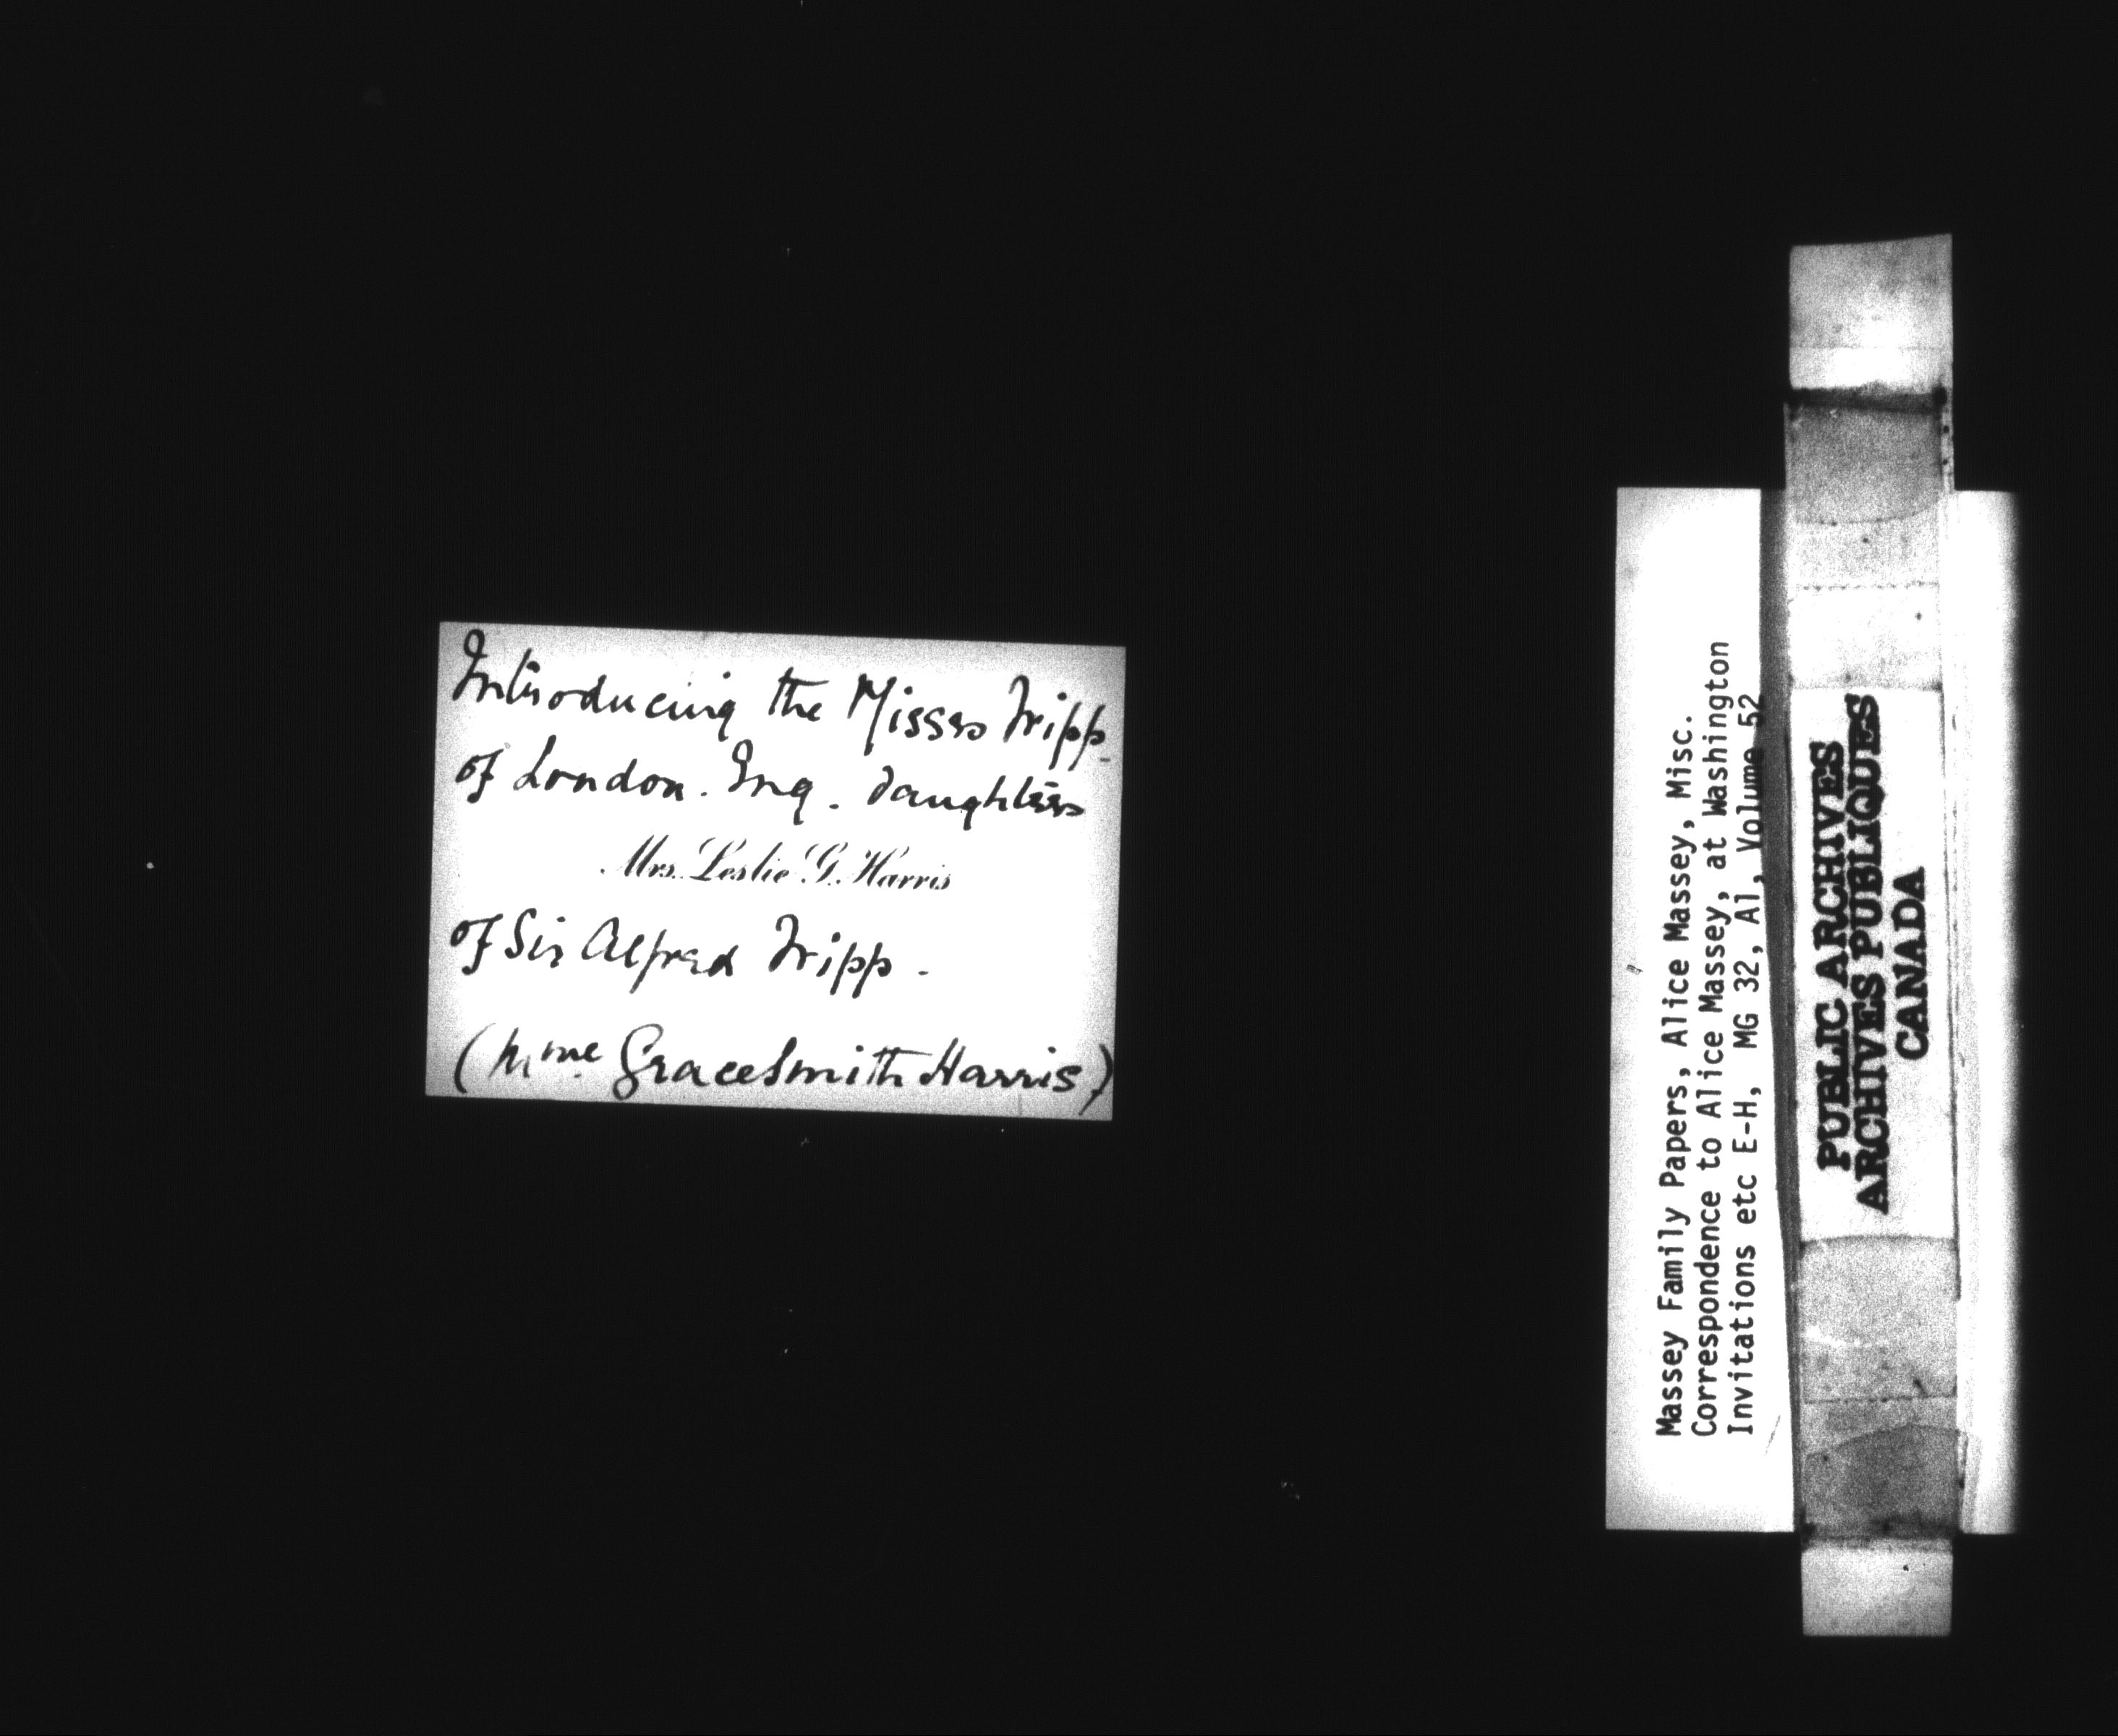 Introducing the Misses Fripp
of London. Eng. daughters
Mrs. Leslie G. Harris
of Sir Alfred Fripp.
(Mme Grace Smith Harris)
Massey Family Papers, Alice Massey, Misc.
Correspondence to Alice Massey, at Washington
Invitations etc E-H, MG 32, A1, Volume 52
PUBLIC ARCHIVES
ARCHIVES PUBLIQUES
CANADA